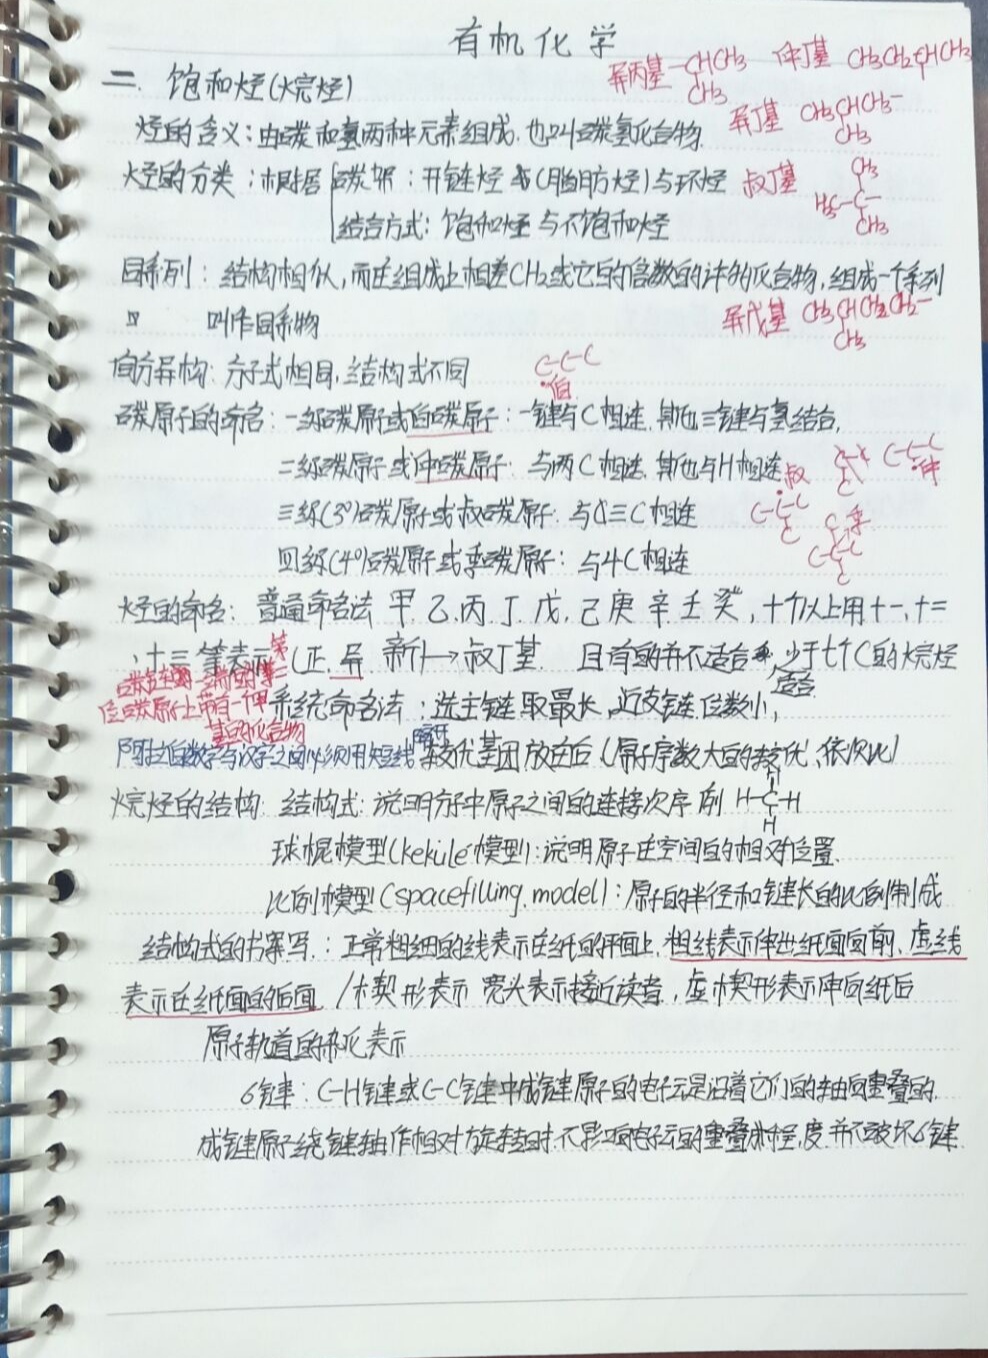 有机化学
异丙基 -CHCH3 仲丁基 CH3CH2CHCH3
CH3
二. 饱和烃(烷烃)
异丁基 CH3CHCH2-
CH3
烃的含义:由碳和氢两种元素组成.也叫碳氢化合物.
烃的分类:根据 碳架:开链烃(脂肪烃)与环烃
叔丁基 CH3
H3C-C-
CH3
结合方式:饱和烃与不饱和烃
同系列:结构相似,而在组成上相差CH2或它的倍数的许多化合物,组成一个系列
叫作同系物
异戊基 CH3CHCH2CH2-
CH3
同分异构:分子式相同,结构式不同
C-C-C
伯
碳原子的命名:一级碳原子或伯碳原子:一键与C相连.其他三键与氢结合,
二级碳原子或仲碳原子:与两C相连.其他与H相连
叔
C-C-C
C
C-C-C
仲
三级(3°)碳原子或叔碳原子:与三C相连
季
四级(4°)碳原子或季碳原子:与4C相连
烃的命名:普通命名法 甲.乙.丙.丁.戊.己庚辛壬癸,十个以上用十一,十二
,十三等表示(正.异.新)→叔丁基. 目前的并不适合少于七个C的烷烃
适合
系统命名法:选主链取最长,近支链位数小,
碳链的一端的第二
位碳原子上带有一甲
基的化合物
阿拉伯数字与汉字之间必须用短线隔开
较优基团放在后(原子序数大的较优,依次比)
烷烃的结构:结构式:说明分子中原子之间的连接次序 例
H
H-C-H
H
球棍模型(kekule模型):说明原子在空间的相对位置.
比例模型(spacefilling.model):原子的半径和键长的比例制成
结构式的书写:正常粗细的线表示在纸的平面上.粗线表示伸出纸面向前.虚线
表示在纸面的后面 /楔形表示 宽头表示接近读者,虚楔形表示伸向纸后
原子轨道的杂化表示
σ键:C-H键或C-C键中成键原子的电子云是沿着它们的轴向重叠的.
成键原子绕键轴作相对旋转时.不影响电子云的重叠程度.并不破坏σ键.